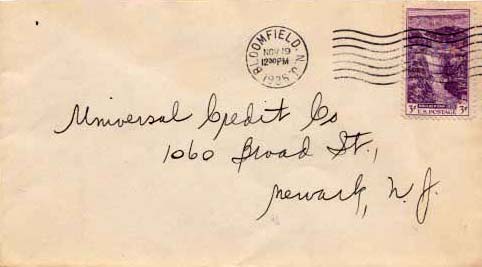 BLOOMFIELD, N.J.
NOV 19
12 30 PM
1935
3¢ 3¢
U.S. POSTAGE
Universal Credit Co
1060 Broad St.,
Newark, N.J.